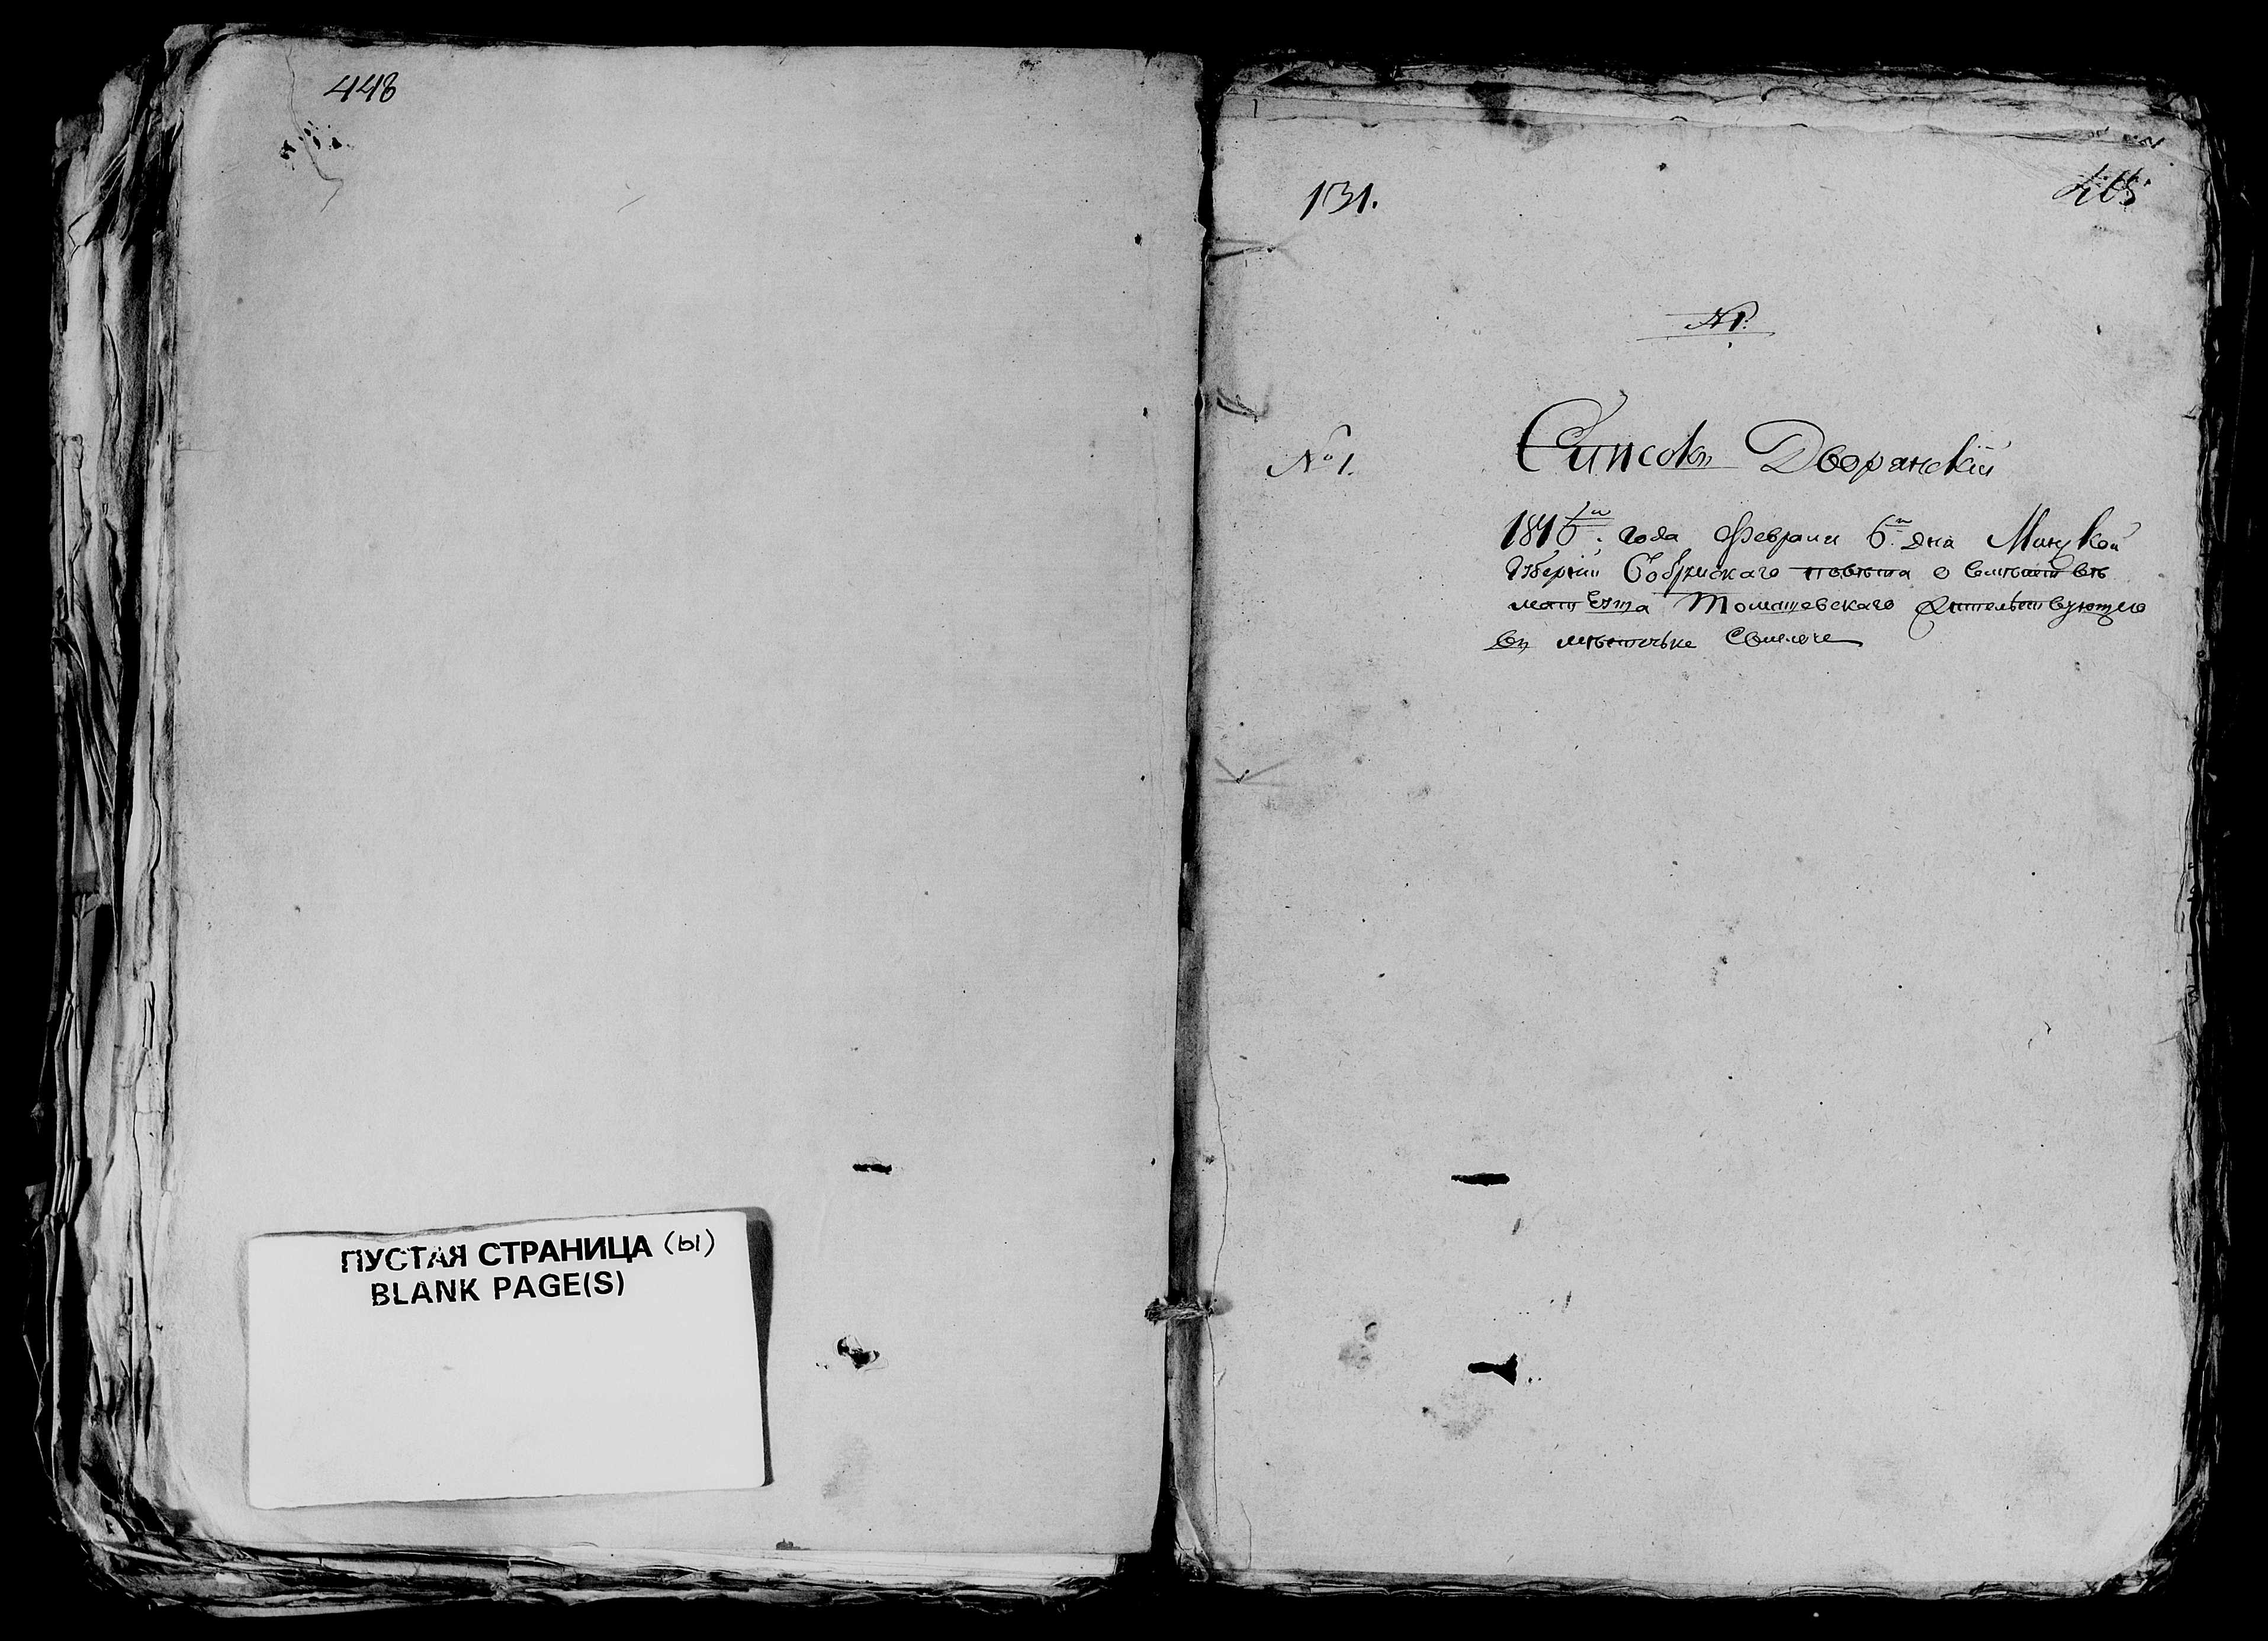 448
ПУСТАЯ СТРАНИЦА (ы)
BLANK PAGE(S)
131.
№ 1.
Списокъ Дворанскій
1816 го года Февраля 6 го дна Минской
Губерніи Бобруйскаго повѣта о
Томашевскаго жительствующего
въ мѣстечке Свислоче